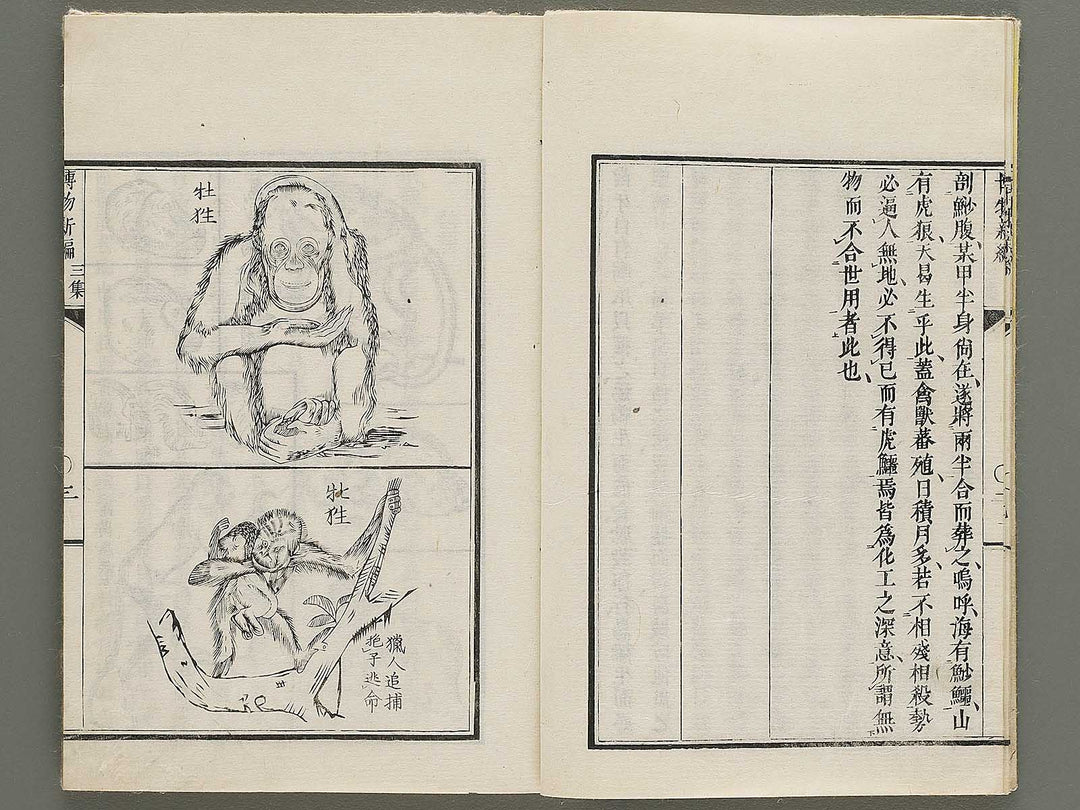 剖鯊腹某甲半身尙在遂將兩半合而葬之嗚呼海有鯊鱷山
有虎狼天曷生乎此蓋禽獸蕃殖日積月多若不相殘相殺勢
必逼人無地必不得已而有虎鱷焉皆爲化工之深意所謂無
物而不合世用者此也
博物新編
三集
三
牡狌
牝狌
獵人追捕
抱子逃命